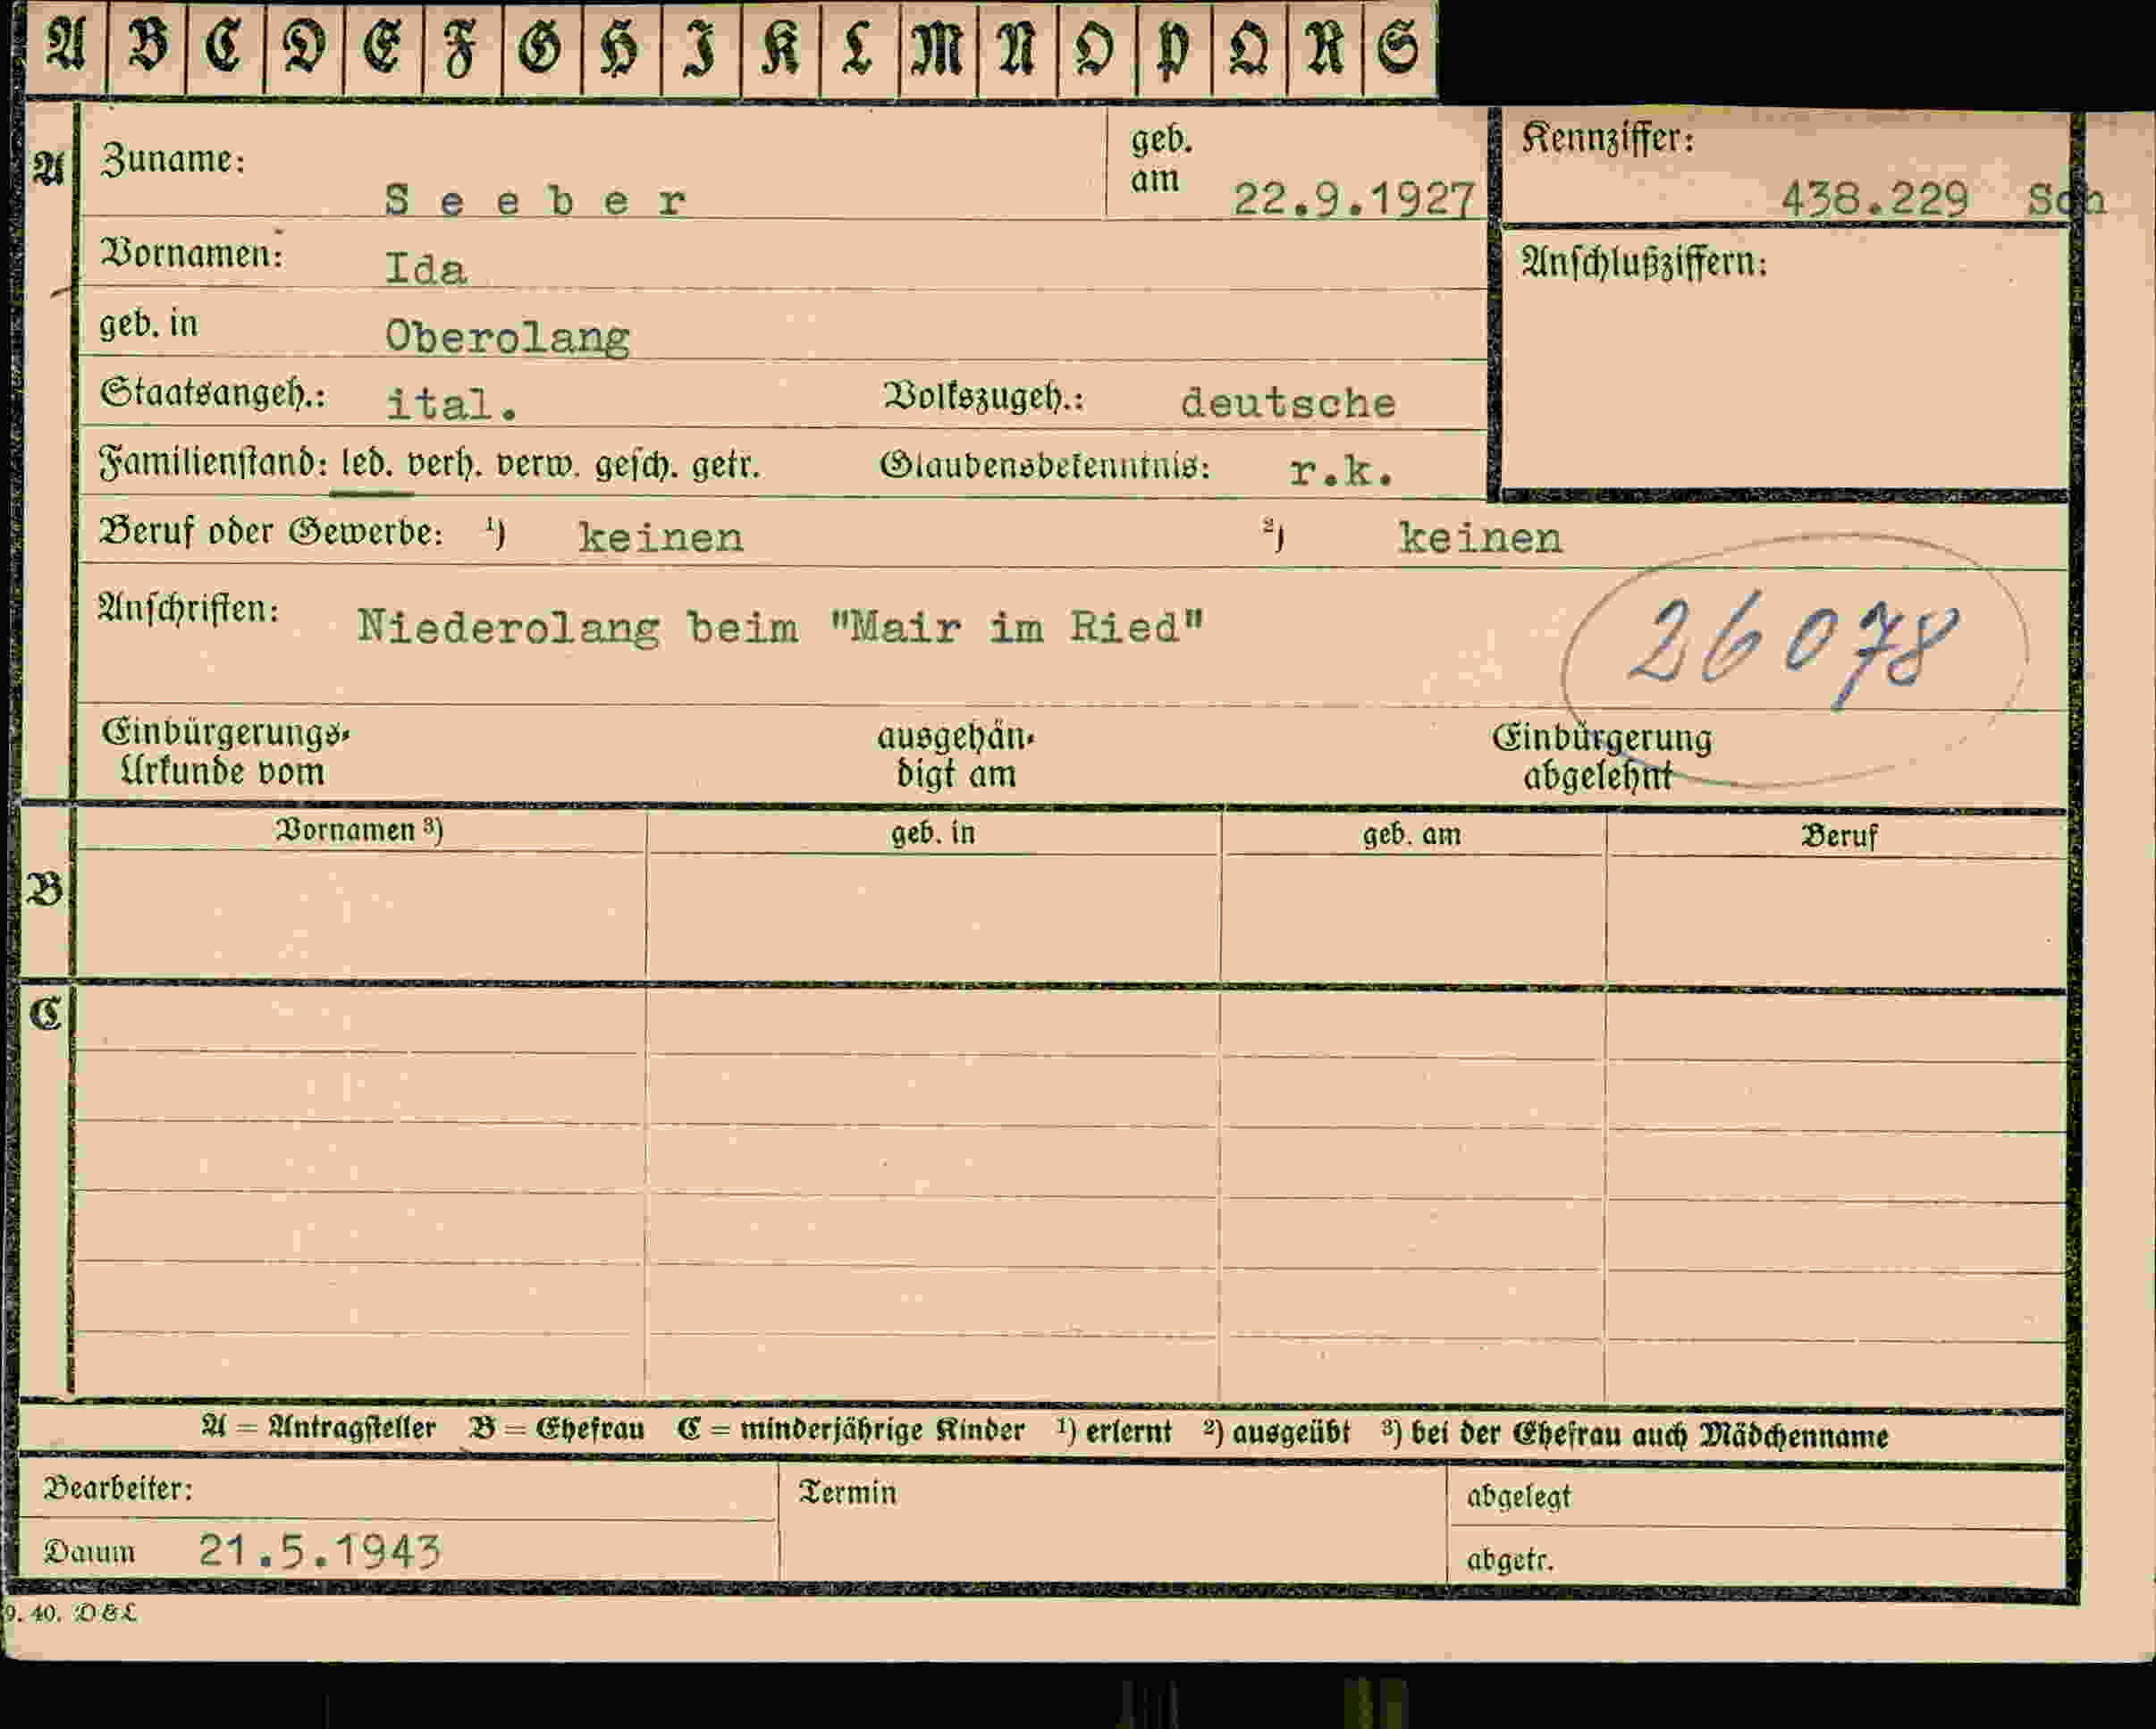 A B C D E F G H I K L M N O P Q R S
A Zuname: S e e b e r geb. am 22.9.1927 Kennziffer: 438.229 Sch
Vornamen: Ida Anschlußziffern:
geb. in Oberolang
Staatsangeh.: ital. Volkszugeh.: deutsche
Familienstand: led. verh. verw. gesch. getr. Glaubensbekenntnis: r.k.
Beruf oder Gewerbe: ¹) keinen ²) keinen
Anschriften: Niederolang beim "Mair im Ried" 26078
Einbürgerungs- ausgehän- Einbürgerung
Urkunde vom digt am abgelehnt
Vornamen ³) geb. in geb. am Beruf
B
C
A = Antragsteller B = Ehefrau C = minderjährige Kinder ¹) erlernt ²) ausgeübt ³) bei der Ehefrau auch Mädchenname
Bearbeiter: Termin abgelegt
Datum 21.5.1943 abgetr.
9. 40. D & L